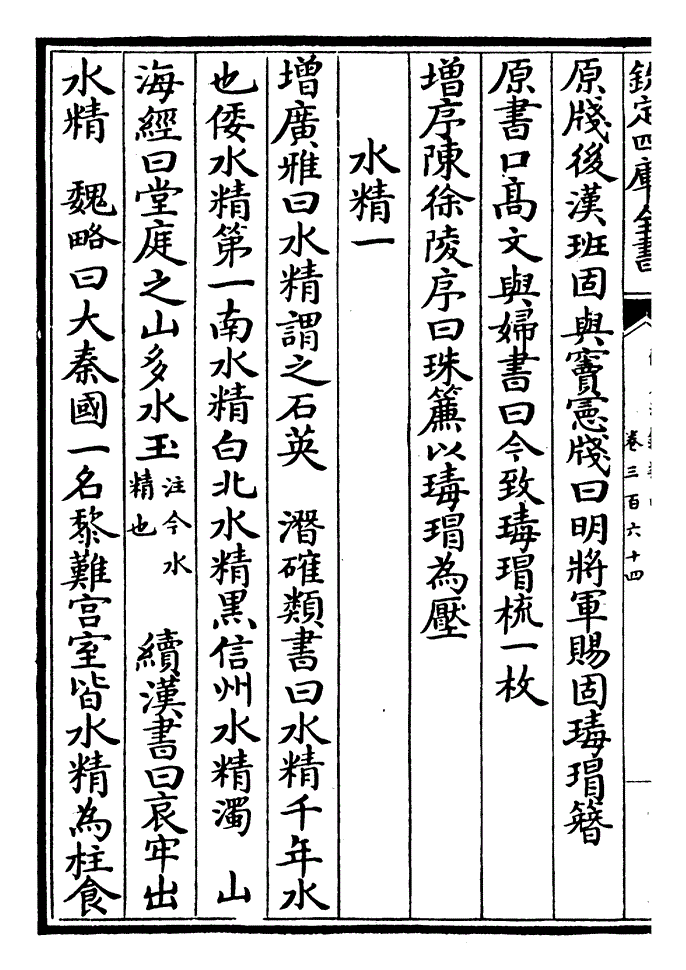 欽定四庫全書
卷三百六十四
原牋後漢班固與竇憲牋曰明將軍賜固瑇瑁簪
原書口高文與婦書曰今致瑇瑁梳一枚
增序陳徐陵序曰珠簾以瑇瑁為壓
水精一
增廣雅曰水精謂之石英　潛確類書曰水精千年水
也倭水精第一南水精白北水精黑信州水精濁　山
海經曰堂庭之山多水玉注今水精也　續漢書曰哀牢出
水精　魏略曰大秦國一名黎難宫室皆水精為柱食